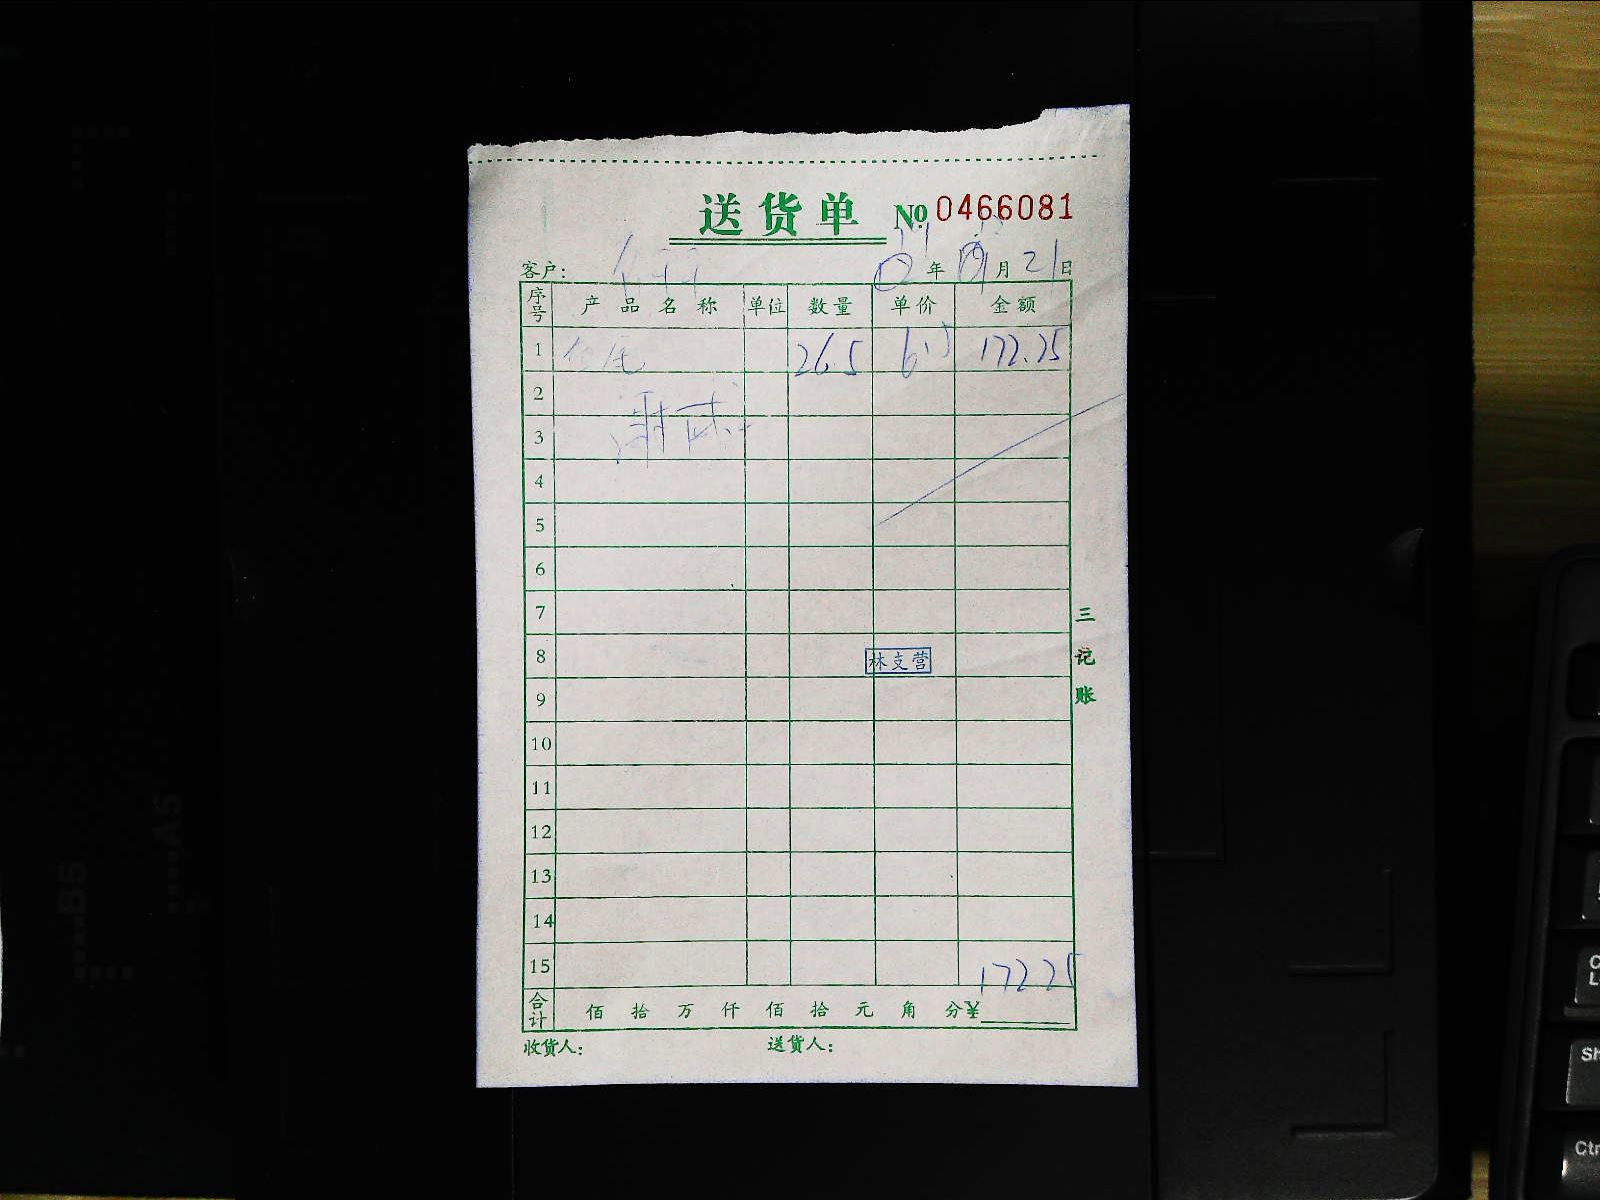 送货单 No 0466081
客户： 年 月 21 日
序号 产品名称 单位 数量 单价 金额
1 26.5 6.5 172.25
2
3
4
5
6
7
8 林支营
9
10
11
12
13
14
15 172.25
合计 佰 拾 万 仟 佰 拾 元 角 分 ¥
收货人： 送货人：
三记账
B5
A5
Ctr